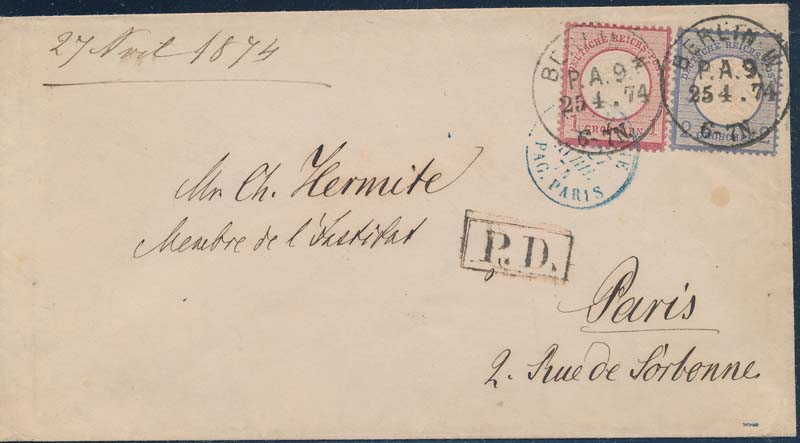 27 Avril 1874
BERLIN. W.
P. A. 9.
25 4. 74
6-7N.
BERLIN. W.
P. A. 9.
25 4. 74
6-7N.
DEUTSCHE REICHS-POST
1 GROSCHEN
DEUTSCHE REICHS-POST
2 GROSCHEN 2
PAG. PARIS
Mr. Ch. Hermite
Membre de l'Institut
P.D.
Paris
2. Rue de Sorbonne